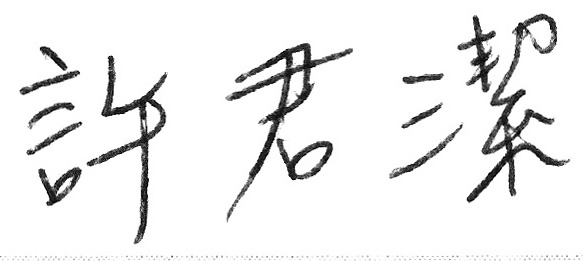 許君潔